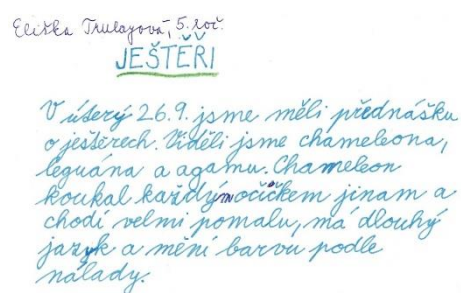 Eliška Trulayová, 5. roč.
JEŠTĚŘI
V úterý 26.9. jsme měli přednášku
o ještěrech. Viděli jsme chameleona,
leguána a agamu. Chameleon
koukal každým očičkem jinam a
chodí velmi pomalu, má dlouhý
jazyk a mění barvu podle
nálady.